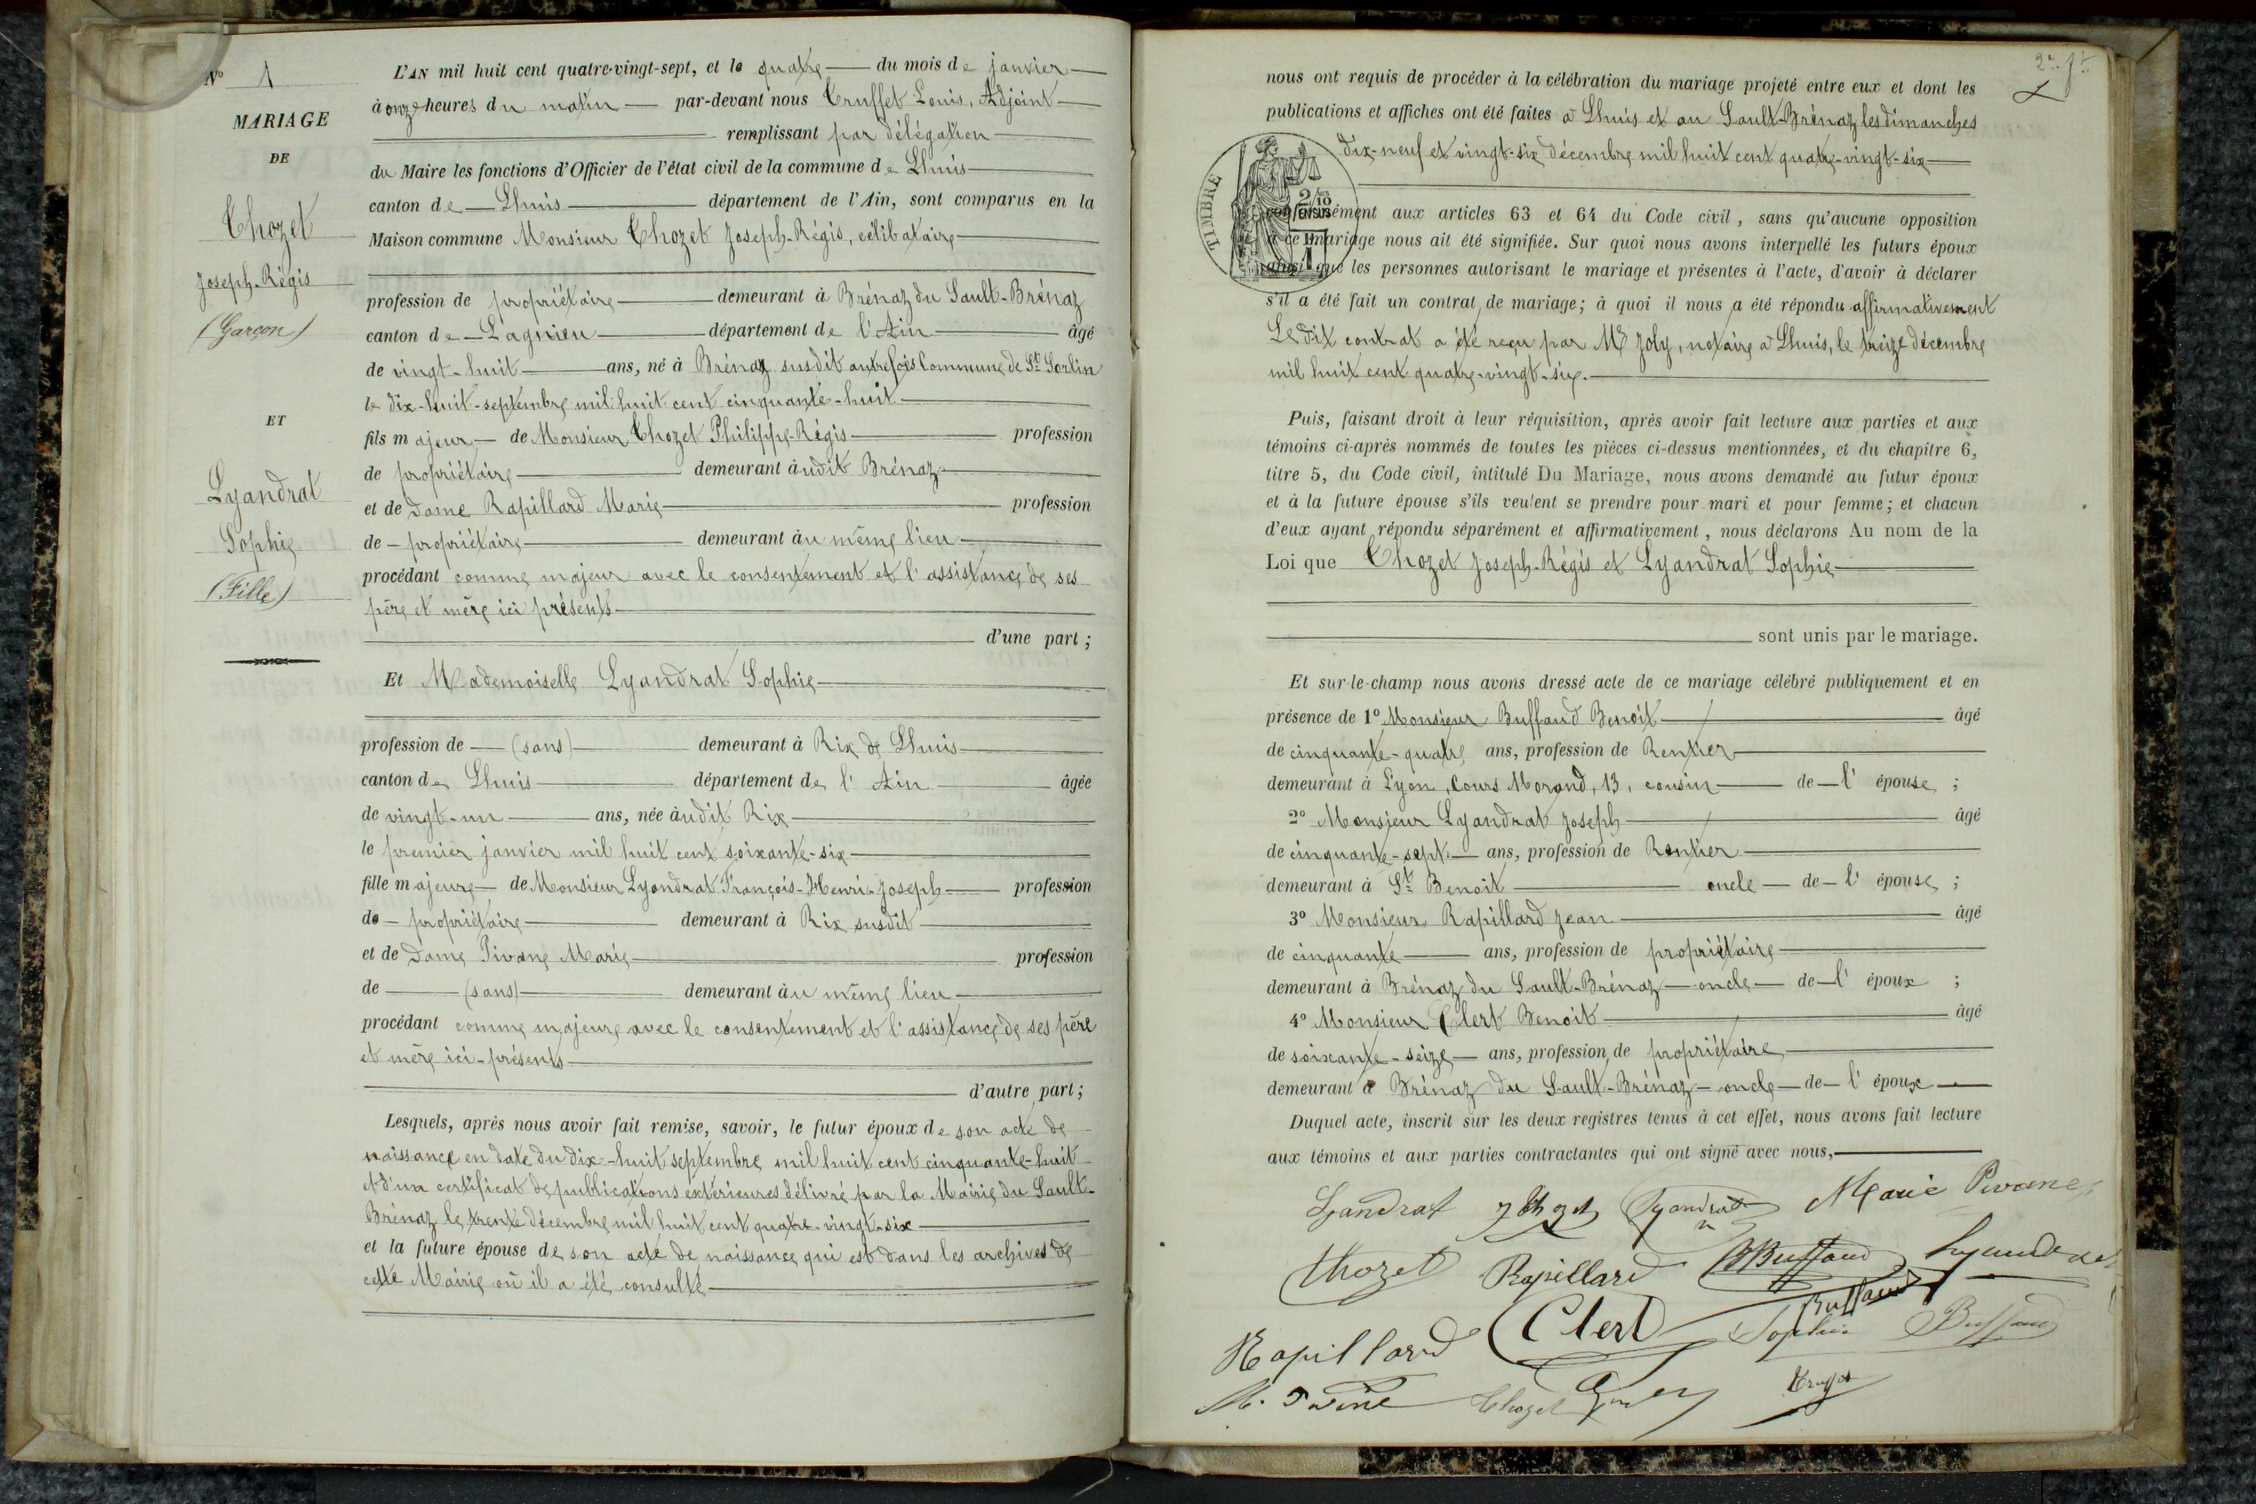 N° 1
MARIAGE
DE
Thozet
Joseph-Régis
(Garçon)
ET
Lyandrat
Sophie
(Fille)
L'AN mil huit cent quatre-vingt-sept, et le quatre du mois de janvier
à onze heures du matin par-devant nous Truffet Louis, Adjoint
remplissant par délégation
du Maire les fonctions d'Officier de l'état civil de la commune de Lhuis
canton de Lhuis département de l'Ain, sont comparus en la
Maison commune Monsieur Thozet Joseph-Régis, célibataire
profession de propriétaire demeurant à Brénaz du Sault-Brénaz
canton de Lagnieu département de l'Ain âgé
de vingt-huit ans, né à Brénaz susdit autrefois Commune de St Sorlin
le dix-huit-septembre mil huit cent cinquante-huit
fils majeur de Monsieur Thozet Philippe-Régis profession
de propriétaire demeurant àudit Brénaz
et de Dame Rapillard Marie profession
de propriétaire demeurant àu même lieu
procédant comme majeur avec le consentement et l'assistance de ses
père et mère ici présents
d'une part ;
Et Mademoiselle Lyandrat Sophie
profession de (sans) demeurant à Rix de Lhuis
canton de Lhuis département de l'Ain âgée
de vingt-un ans, née àudit Rix
le premier janvier mil huit cent soixante-six
fille majeure de Monsieur Lyandrat François-Henri-Joseph profession
de propriétaire demeurant à Rix susdit
et de Dame Pivane Marie profession
de (sans) demeurant àu même lieu
procédant comme majeure avec le consentement et l'assistance de ses père
et mère ici-présents
d'autre part ;
Lesquels, après nous avoir fait remise, savoir, le futur époux de son acte de
naissance en date du dix-huit septembre mil huit cent cinquante-huit
et d'un certificat de publications extérieures délivré par la Mairie du Sault-
Brénaz le trente décembre mil huit cent quatre-vingt-six
et la future épouse de son acte de naissance qui est dans les archives de
cette Mairie où il a été consulté
nous ont requis de procéder à la célébration du mariage projeté entre eux et dont les
publications et affiches ont été faites à Lhuis et au Sault-Brénaz les dimanches
dix-neuf et vingt-six décembre mil huit cent quatre-vingt-six
TIMBRE
2/10
EN SUS
conformément aux articles 63 et 64 du Code civil, sans qu'aucune opposition
à ce mariage nous ait été signifiée. Sur quoi nous avons interpellé les futurs époux
ainsi que les personnes autorisant le mariage et présentes à l'acte, d'avoir à déclarer
s'il a été fait un contrat de mariage ; à quoi il nous a été répondu affirmativement
Le dit contrat a été reçu par Me Joly, notaire à Lhuis, le treize décembre
mil huit cent quatre-vingt-six.
Puis, faisant droit à leur réquisition, après avoir fait lecture aux parties et aux
témoins ci-après nommés de toutes les pièces ci-dessus mentionnées, et du chapitre 6,
titre 5, du Code civil, intitulé Du Mariage, nous avons demandé au futur époux
et à la future épouse s'ils veulent se prendre pour mari et pour femme ; et chacun
d'eux ayant répondu séparément et affirmativement, nous déclarons Au nom de la
Loi que Thozet Joseph-Régis et Lyandrat Sophie
sont unis par le mariage.
Et sur-le-champ nous avons dressé acte de ce mariage célébré publiquement et en
présence de 1° Monsieur Buffaud Benoît âgé
de cinquante-quatre ans, profession de Rentier
demeurant à Lyon, Cours Morand, 13, cousin de l'épouse ;
2° Monsieur Lyandrat Joseph âgé
de cinquante-sept ans, profession de Rentier
demeurant à St Benoît oncle de l'épouse ;
3° Monsieur Rapillard Jean âgé
de cinquante ans, profession de propriétaire
demeurant à Brénaz du Sault-Brénaz oncle de l'époux ;
4° Monsieur Clert Benoit âgé
de soixante-seize ans, profession de propriétaire
demeurant à Brénaz du Sault-Brénaz oncle de l'époux
Duquel acte, inscrit sur les deux registres tenus à cet effet, nous avons fait lecture
aux témoins et aux parties contractantes qui ont signé avec nous,
Lyandrat J Thozet Lyandrat Marie Pivane
Thozet Rapillard B Buffaud Lyandrat
Rapillard Clert Buffaud Sophie Buffaud
Thozet Truffet